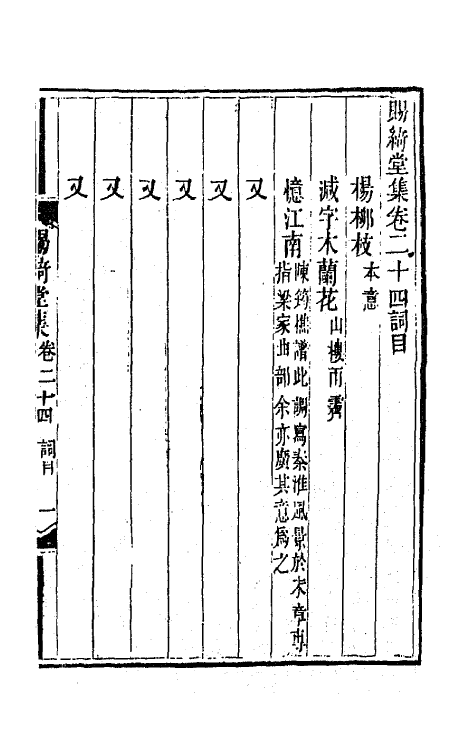 賜綺堂集卷二十四詞目
楊柳枝 本意
減字木蘭花 山樓雨霽
憶江南 陳筠樵譜此調寫秦淮風景於末章專
指梁家曲部余亦廣其意爲之
又
又
又
又
又
又
賜綺堂集 卷二十四 詞目 一